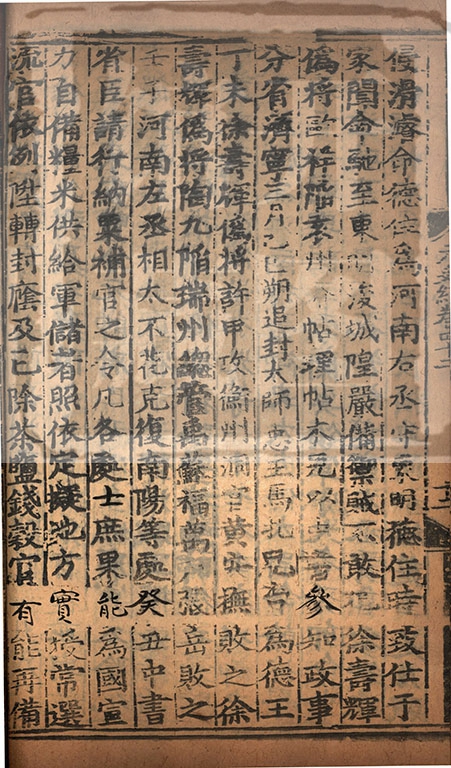 侵滑濬命德住為河南右丞守東明德住時致仕于
家聞命馳至東明浚城隍嚴備禦賊不敢犯徐壽輝
偽將歐祥陷袁州 帖理帖木兒以中書參知政事
分省濟寧三月乙巳朔追封太師忠王馬扎兒台為德王
丁未徐壽輝偽將許甲攻衡州洞官黃安撫敗之徐
壽輝偽將陶九陷瑞州總管禹蘇福萬戶張岳敗之
壬子河南左丞相太不花克復南陽等處癸丑中書
省臣請行納粟補官之令凡各處士庶果能為國宣
力自備糧米供給軍儲者照依定擬地方實授常選
流官依例陞轉封廕及已除茶鹽錢穀官有能再備